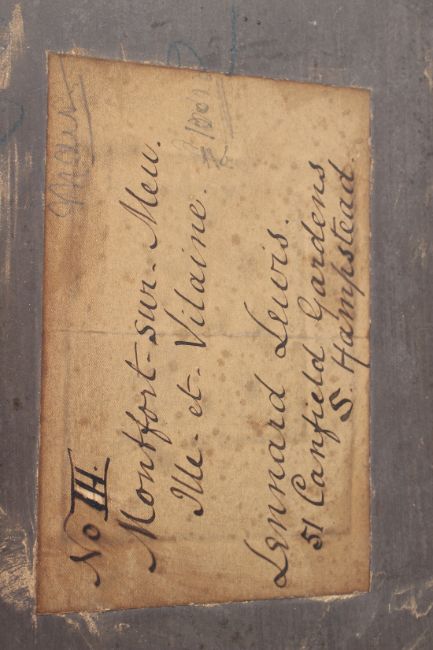 No III.
Montfort-sur-Meu.
Ille-et-Vilaine.
Lennard Lewis.
51 Canfield Gardens
S. Hampstead.